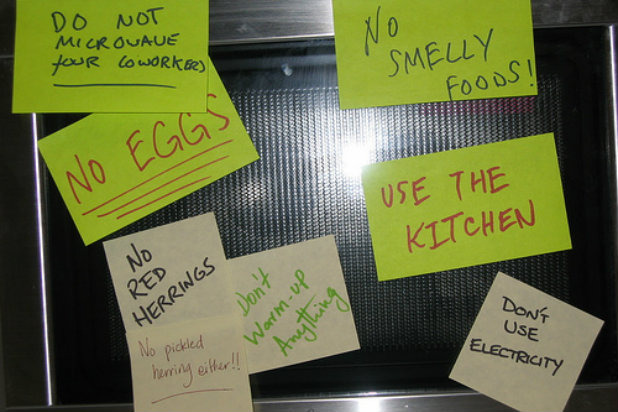 DO NOT
MICROWAVE
YOUR COWORKERS
NO
SMELLY
FOODS!
NO EGGS
USE THE
KITCHEN
NO
RED
HERRINGS
Don't
Warm-up
Anything
No pickled
herring either!!
DON'T
USE
ELECTRICITY